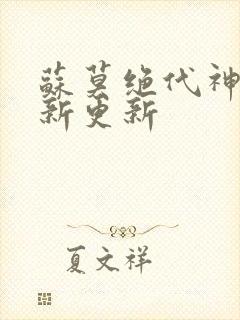 蘇莫绝代神
新更新
夏文祥